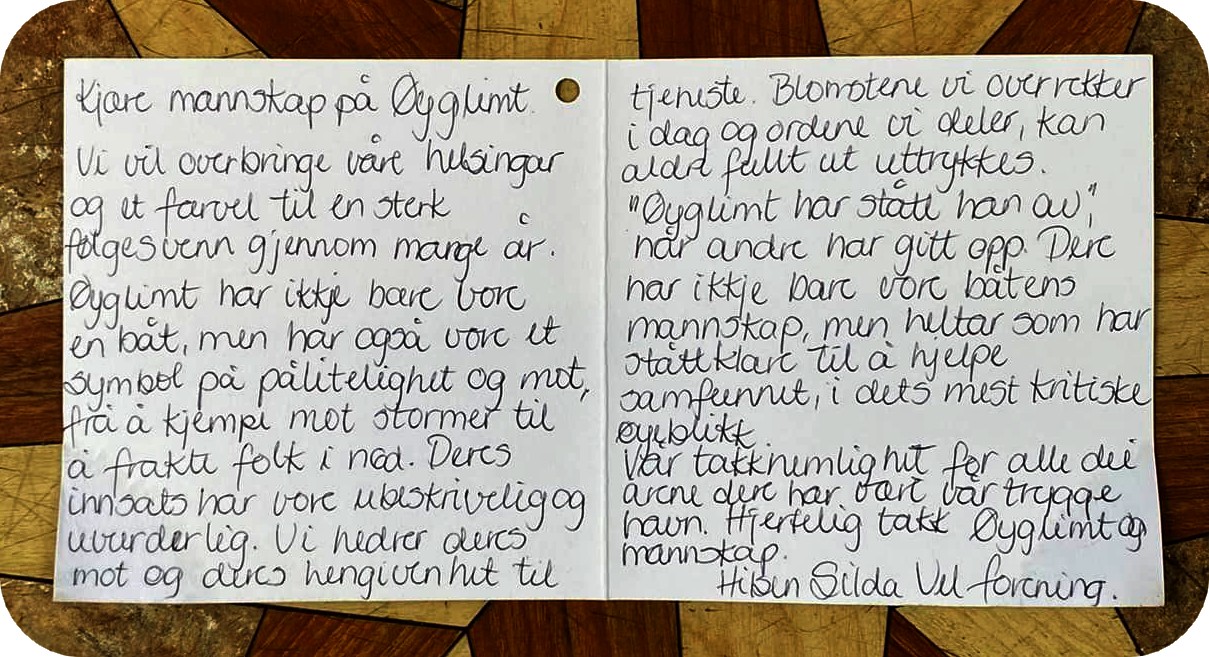 Kjære mannskap på Øyglimt.
Vi vil overbringe våre helsingar
og et farvel til en sterk
følgesvenn gjennom mange år.
Øyglimt har ikkje bare vore
en båt, men har også vore et
symbol på pålitelighet og mot,
frå å kjempe mot stormer til
å frakte folk i nød. Deres
innsats har vore ubeskrivelig og
uvurderlig. Vi hedrer deres
mot og deres hengivenhet til
tjeneste. Blomstene vi overrekker
i dag og ordene vi deler, kan
aldri fullt ut uttrykkes.
"Øyglimt har stått han av",
når andre har gitt opp. Dere
har ikkje bare vore båtens
mannskap, men heltar som har
stått klare til å hjelpe
samfunnet, i dets mest kritiske
øyeblikk.
Vår takknemlighet for alle dei
årene dere har vært vår trygge
havn. Hjertelig takk Øyglimt og
mannskap.
Hilsen Silda Vel forening.